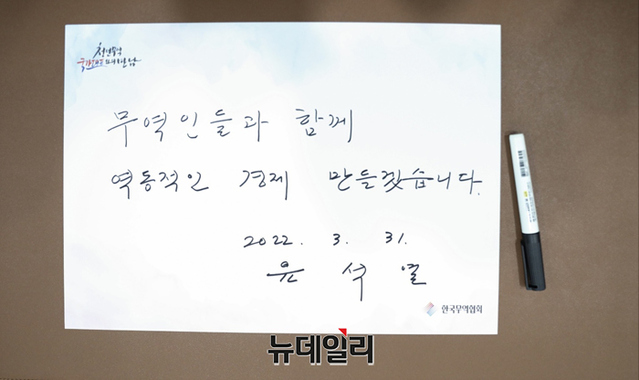 청년무역
국가대표와의 만남
무역인들과 함께
역동적인 경제 만들겠습니다.
2022. 3. 31.
윤석열
한국무역협회
뉴데일리